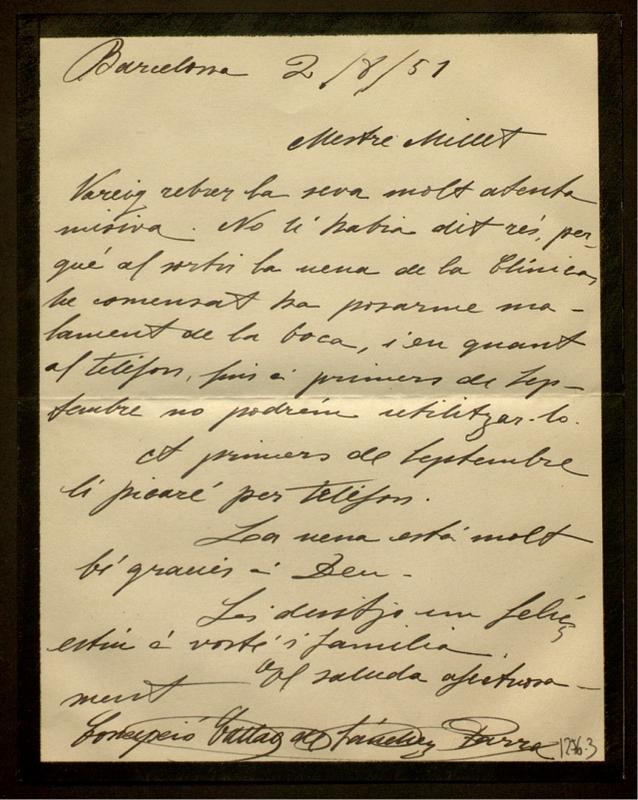 Barcelona 2/8/51
Mestre Millet
Vareig rebrer la seva molt atenta
misiva. No li habia dit rés, per-
qué al sortir la nena de la Clínica,
he comensat ha posarme ma-
lament de la boca, i en quant
al telèfon, fins à primers de Sep-
tembre no podrém utilitzar-lo.
A primers de Septembre
li picaré per telèfon.
La nena está molt
bé gracies à Deu.
Les desitjo un feliç
estiu à vosté i familia.
El saluda afectuosa-
ment
Concepció de Sánchez Parra
1276.3